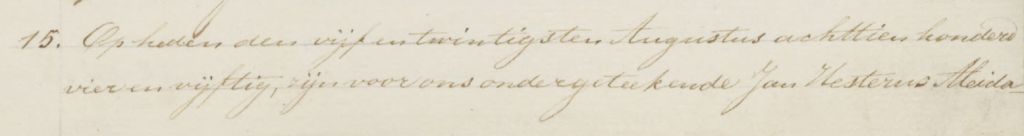 15. Op heden den vijf en twintigsten Augustus achttien honderd
vier en vijftig, zijn voor ons ondergeteekende Jan Hesterus Aleida